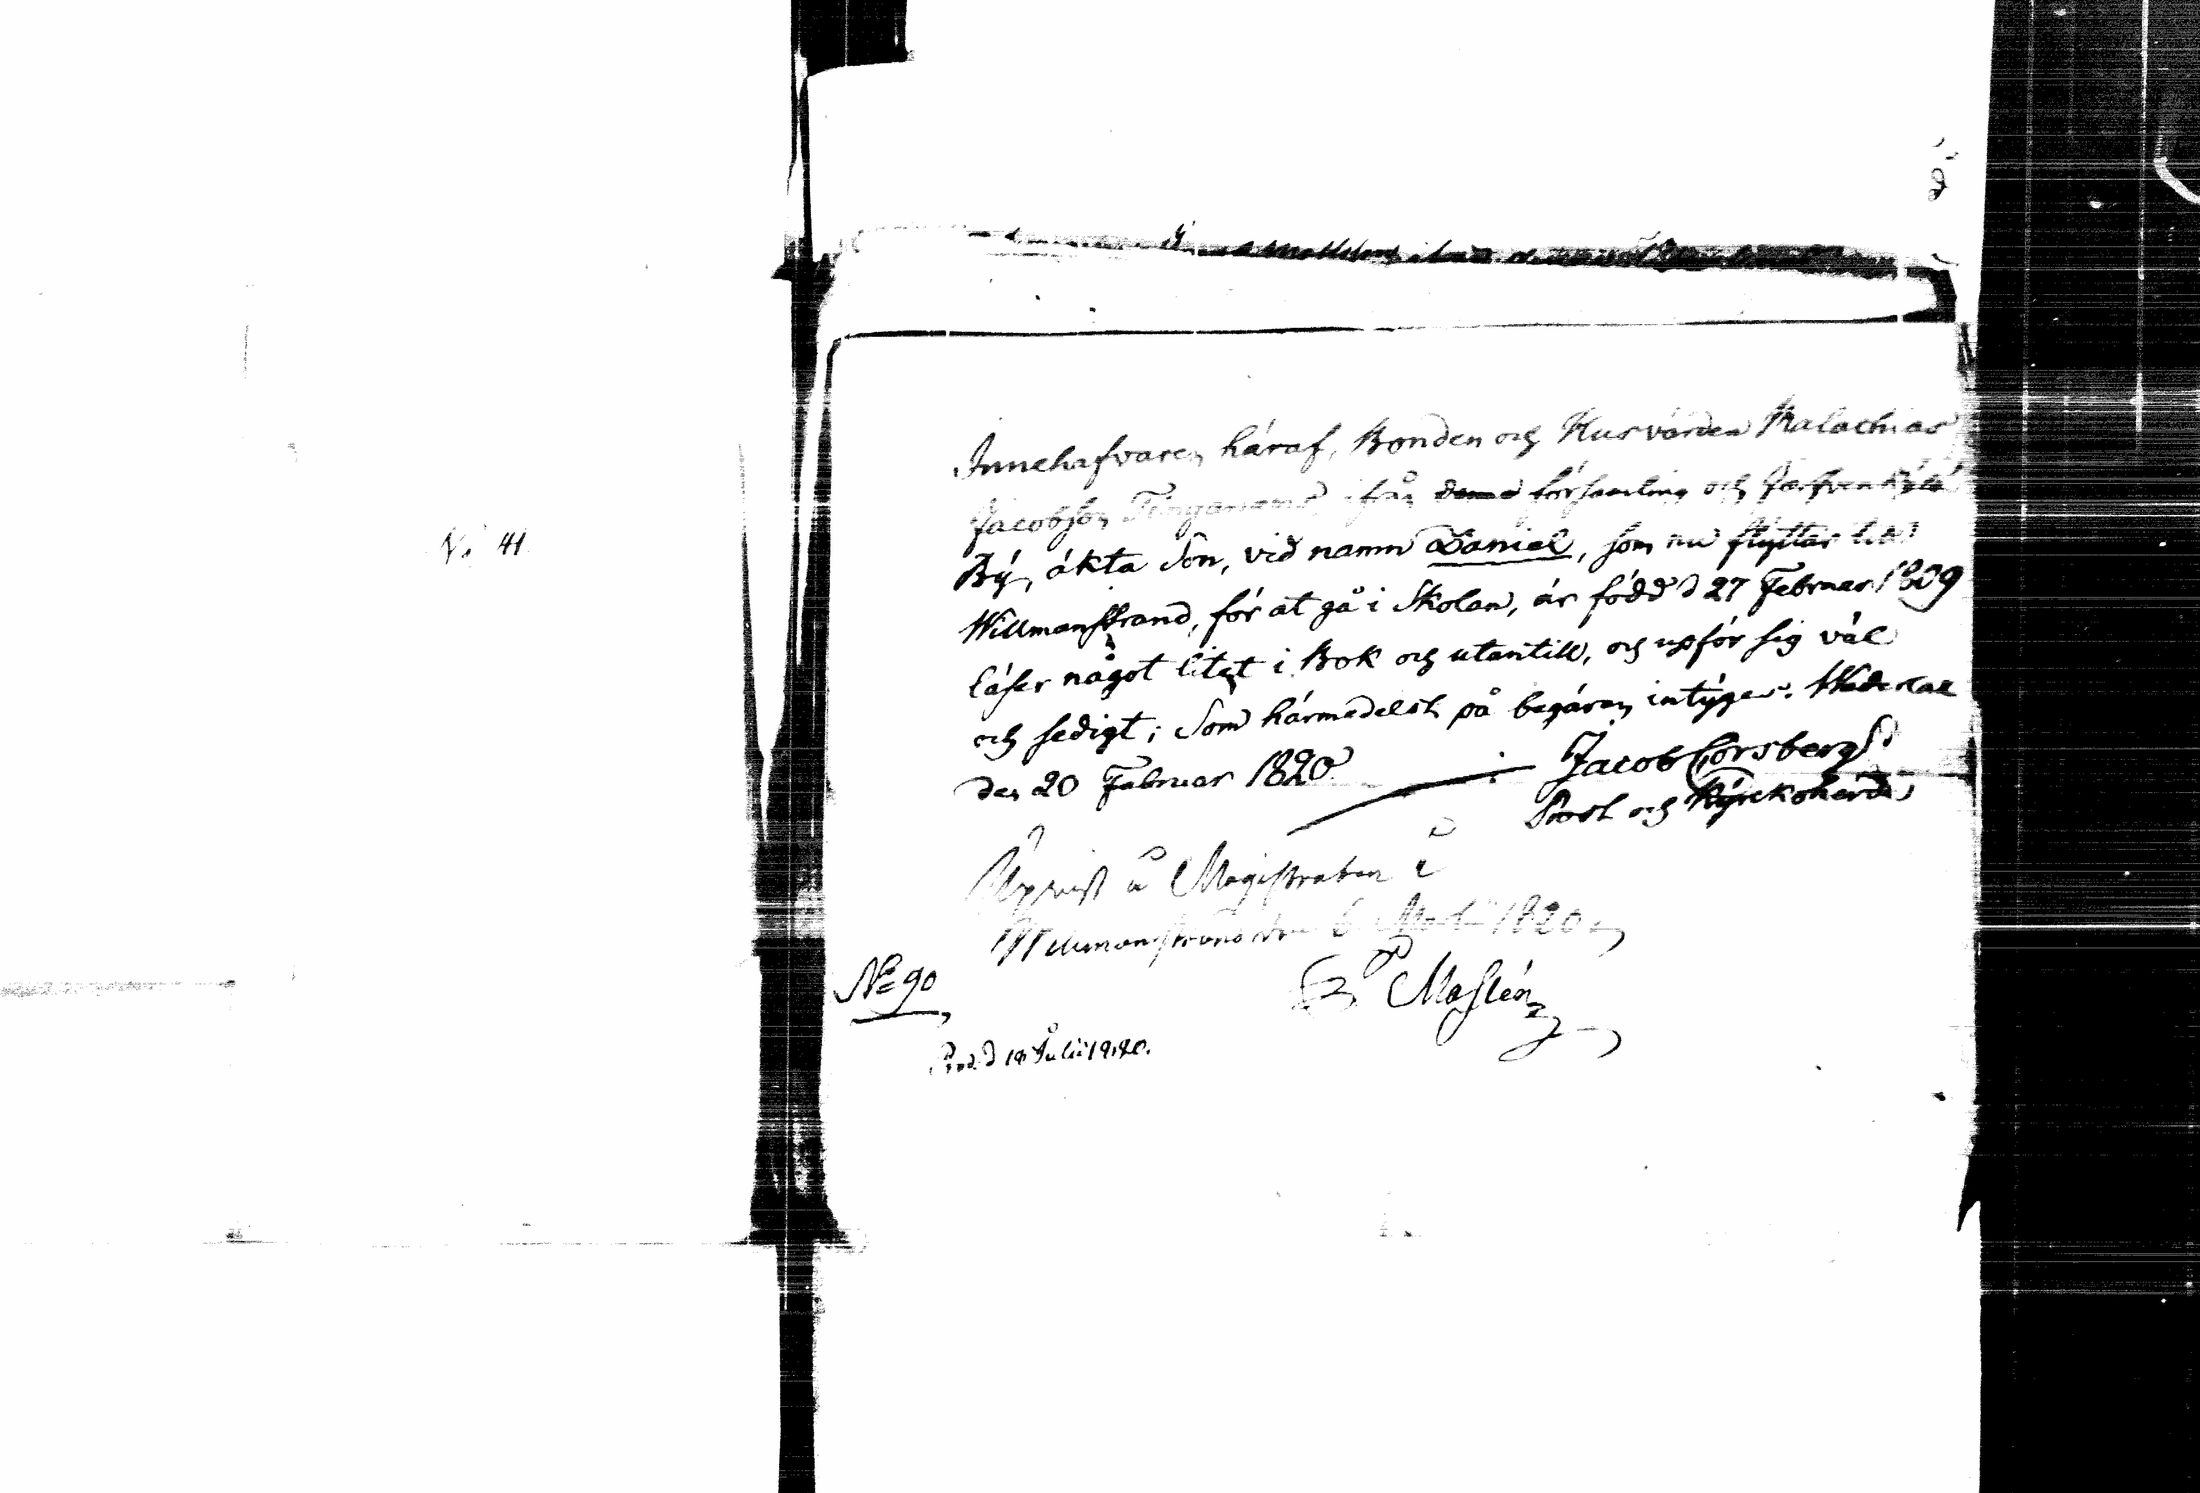 No 41
Innehafvaren häraf, Bonden och Husvärden Malachias
Jacobson ifrån denna församling och Jerfvenkylä
By, äkta Son, vid namn Daniel, som nu flyttar till
Willmanstrand, för at gå i Skolan, är född d 27 Februar. 1809
läser något litet i Bok och utantill, och upför sig väl
och sedigt; Som härmedelst på begäran intygar. Wederlax
den 20 Februar 1820. Jacob Forsberg
Prost och Kyrckoherde
Upvist å Magistraten i
Willmanstrand den 1820
Maslén
No 90
Prod. d 18 Julii 1820.